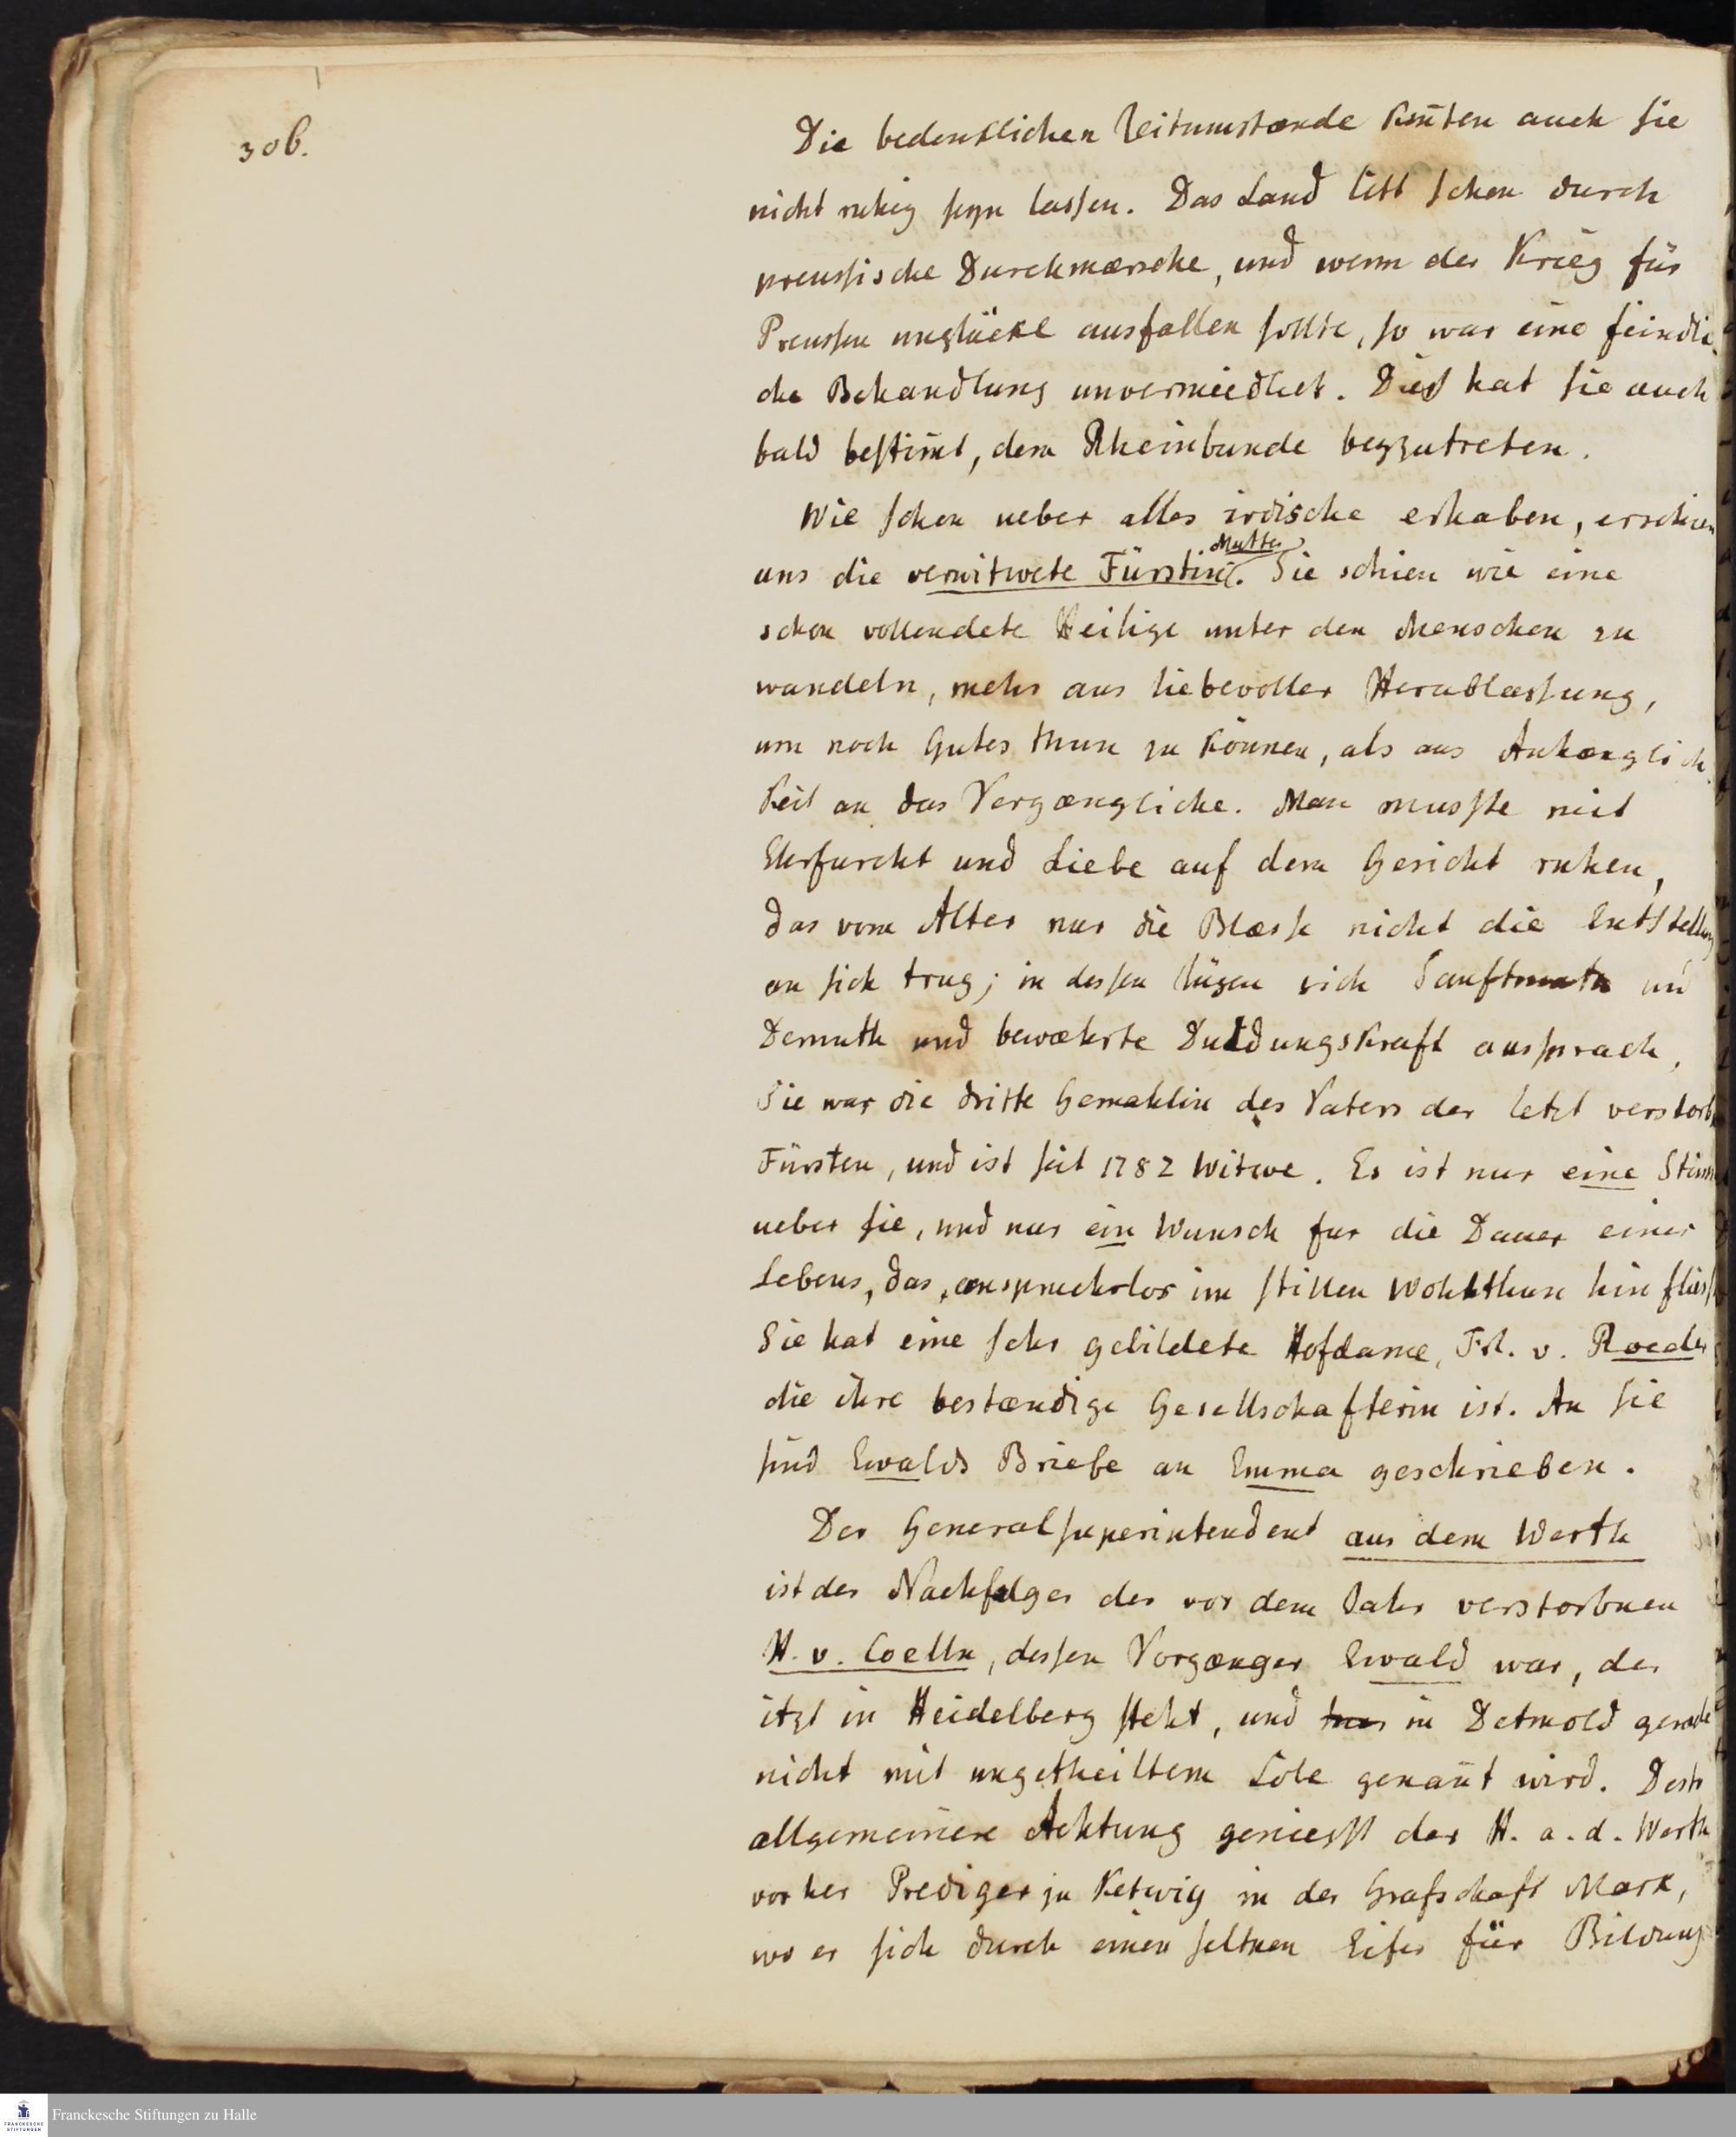 306.
Die bedenklichen Zeitumstænde kon̄ten auch sie
nicht ruhig seyn lassen. Das Land litt schon durch
preussische Durchmærsche, und wenn der Krieg für
Preussen unglückl ausfallen sollte, so war eine feindli-
che Behandlung unvermeidlich. Dies hat sie auch
bald bestim̄t, dem Rheinbunde beyzutreten.
Wie schon ueber alles irdische erhaben, erschien
uns die verwitwete Fürstin Mutter. Sie schien wie eine
schon vollendete Heilige unter den Menschen zu
wandeln, mehr aus liebevoller Herablassung,
um noch Gutes thun zu können, als aus Anhænglich-
keit an das Vergængliche. Man musste mit
Ehrfurcht und Liebe auf dem Gesicht ruhen,
das vom Alter nur die Blæsse nicht die Entstellung
an sich trug; in dessen Zügen sich Sanftmuth und
Demuth und bewæhrte Duldungskraft aussprach.
Sie war die dritte Gemahlin des Vaters der letzt verstorb
Fürsten, und ist seit 1782 Witwe. Es ist nur eine Stimm
ueber sie, und nur ein Wunsch fur die Dauer eines
Lebens, das anspruchslos im stillen Wohlthun hin fliess
Sie hat eine sehr gebildete Hofdame, Frl. v. Roeder
die ihre bestændige Gesellschafterin ist. An sie
sind Ewalds Briefe an Emma geschrieben.
Der Generalsuperintendent aus dem Werth
ist der Nachfolger des vor dem Jahr verstorbnen
H. v. Coelln, dessen Vorgænger Ewald war, der
itzt in Heidelberg steht, und in Detmold gerade
nicht mit ungetheiltem Lobe genan̄t wird. Desto
allgemeinere Achtung geniesst der H. a. d. Werth
vorher Prediger zu Ketwig in der Grafschaft Mark,
wo er sich durch einen seltnen Eifer für Bildung
Franckesche Stiftungen zu Halle
FRANCKESCHE
STIFTUNGEN